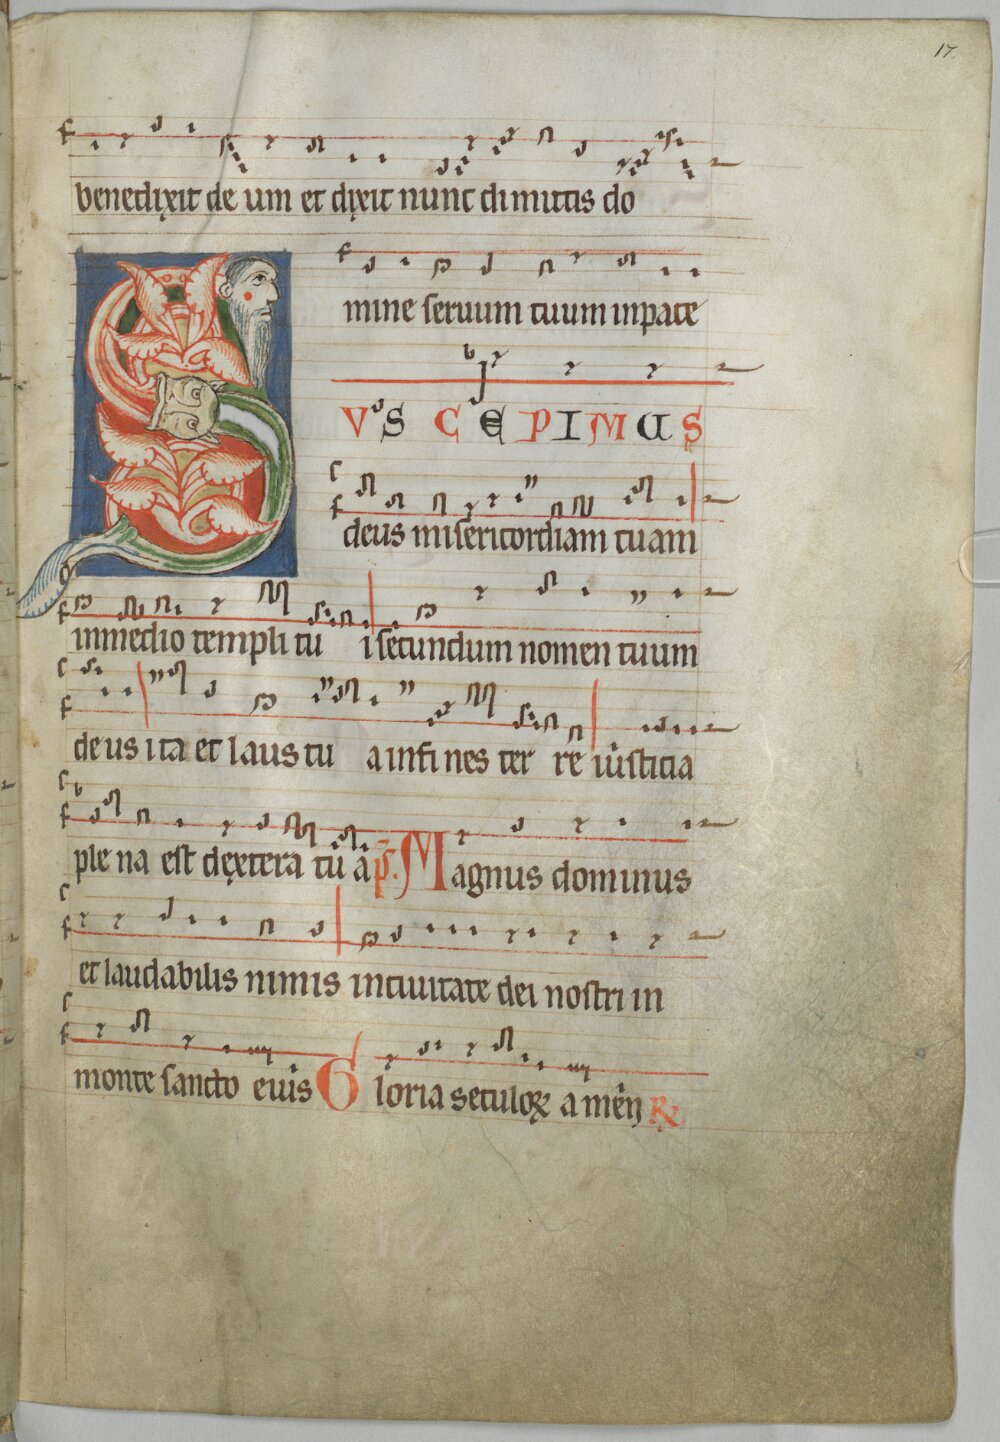 17
benedixit de um et dixit nunc dimittis do
mine seruum tuum inpace
SUSCEPIMUS
deus misericordiam tuam
inmedio templi tu i secundum nomen tuum
deus ita et laus tu a infi nes ter re iusticia
ple na est dextera tu a ps. Magnus dominus
et laudabilis nimis inciuitate dei nostri in
monte sancto eius Gloria seculoꝝ amen ℞